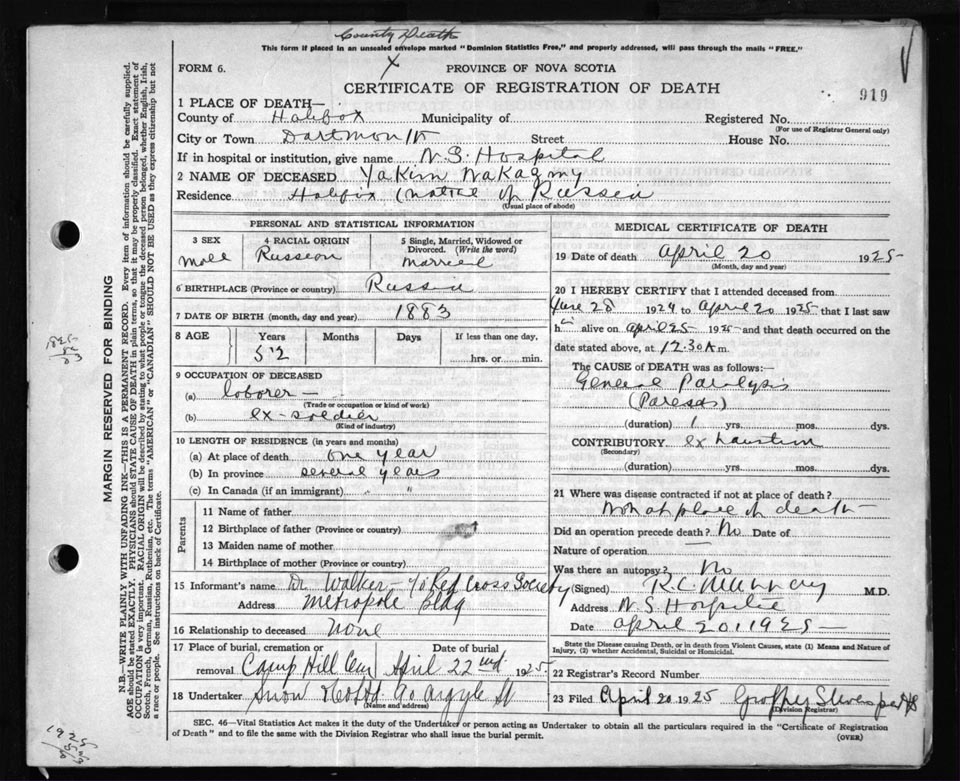 County Death
This form if placed in an unsealed envelope marked "Dominion Statistics Free," and properly addressed, will pass through the mails "FREE."
FORM 6.
X
PROVINCE OF NOVA SCOTIA
CERTIFICATE OF REGISTRATION OF DEATH
919
1 PLACE OF DEATH—
County of Halifax Municipality of Registered No.
(For use of Registrar General only)
City or Town Dartmouth Street House No.
If in hospital or institution, give name N.S. Hospital
2 NAME OF DECEASED Yakim Nakagmy
Residence Halifix (native of Russia
(Usual place of abode)
PERSONAL AND STATISTICAL INFORMATION
3 SEX
Male
4 RACIAL ORIGIN
Russion
5 Single, Married, Widowed or Divorced. (Write the word)
Married
6 BIRTHPLACE (Province or country) Russia
7 DATE OF BIRTH (month, day and year) 1883
8 AGE Years Months Days If less than one day,
52 hrs. or min.
9 OCCUPATION OF DECEASED
(a) laborer —
(Trade or occupation or kind of work)
(b) ex-soldier
(Kind of industry)
10 LENGTH OF RESIDENCE (in years and months)
(a) At place of death one year
(b) In province several years
(c) In Canada (if an immigrant) " "
Parents
11 Name of father
12 Birthplace of father (Province or country)
13 Maiden name of mother
14 Birthplace of mother (Province or country)
15 Informant's name Dr Walker — c/o Red Cross Society
Address Metropole bldg
16 Relationship to deceased none
17 Place of burial, cremation or removal Camp Hill Cem
Date of burial April 22nd 1925
18 Undertaker Snow 90 Argyle St
(Name and address)
MEDICAL CERTIFICATE OF DEATH
19 Date of death April 20 1925
(Month, day and year)
20 I HEREBY CERTIFY that I attended deceased from
June 28 1924 to April 20 1925 that I last saw
him alive on April 25 1925 and that death occurred on
date stated above, at 12.30 A m.
The CAUSE of DEATH was as follows:
General Paralysis
(Paresas)
(duration) 1 yrs. mos. dys.
CONTRIBUTORY exhaustion
(Secondary)
(duration) yrs. mos. dys.
21 Where was disease contracted if not at place of death?
Not at place of death —
Did an operation precede death? No Date of
Nature of operation —
Was there an autopsy? No
(Signed) R.C. Murray M.D.
Address N.S Hospital
Date April 20, 1925 —
State the Disease causing Death, or in death from Violent Causes, state (1) Means and Nature of Injury, (2) whether Accidental, Suicidal or Homicidal.
22 Registrar's Record Number
23 Filed April 20 1925
(Division Registrar)
SEC. 46—Vital Statistics Act makes it the duty of the Undertaker or person acting as Undertaker to obtain all the particulars required in the "Certificate of Registration of Death" and to file the same with the Division Registrar who shall issue the burial permit.
(OVER)
MARGIN RESERVED FOR BINDING
N.B.—WRITE PLAINLY WITH UNFADING INK—THIS IS A PERMANENT RECORD. Every item of information should be carefully supplied.
AGE should be stated EXACTLY. PHYSICIANS should STATE CAUSE OF DEATH in plain terms, so that it may be properly classified. Exact statement of
OCCUPATION is very important. RACIAL ORIGIN will be described by stating to what people or tongue the deceased person belonged, whether English, Irish,
Scotch, French, German, Russian, Ruthenian, etc. The terms "AMERICAN" or "CANADIAN" SHOULD NOT BE USED as they express citizenship but not
a race or people. See instructions on back of Certificate.